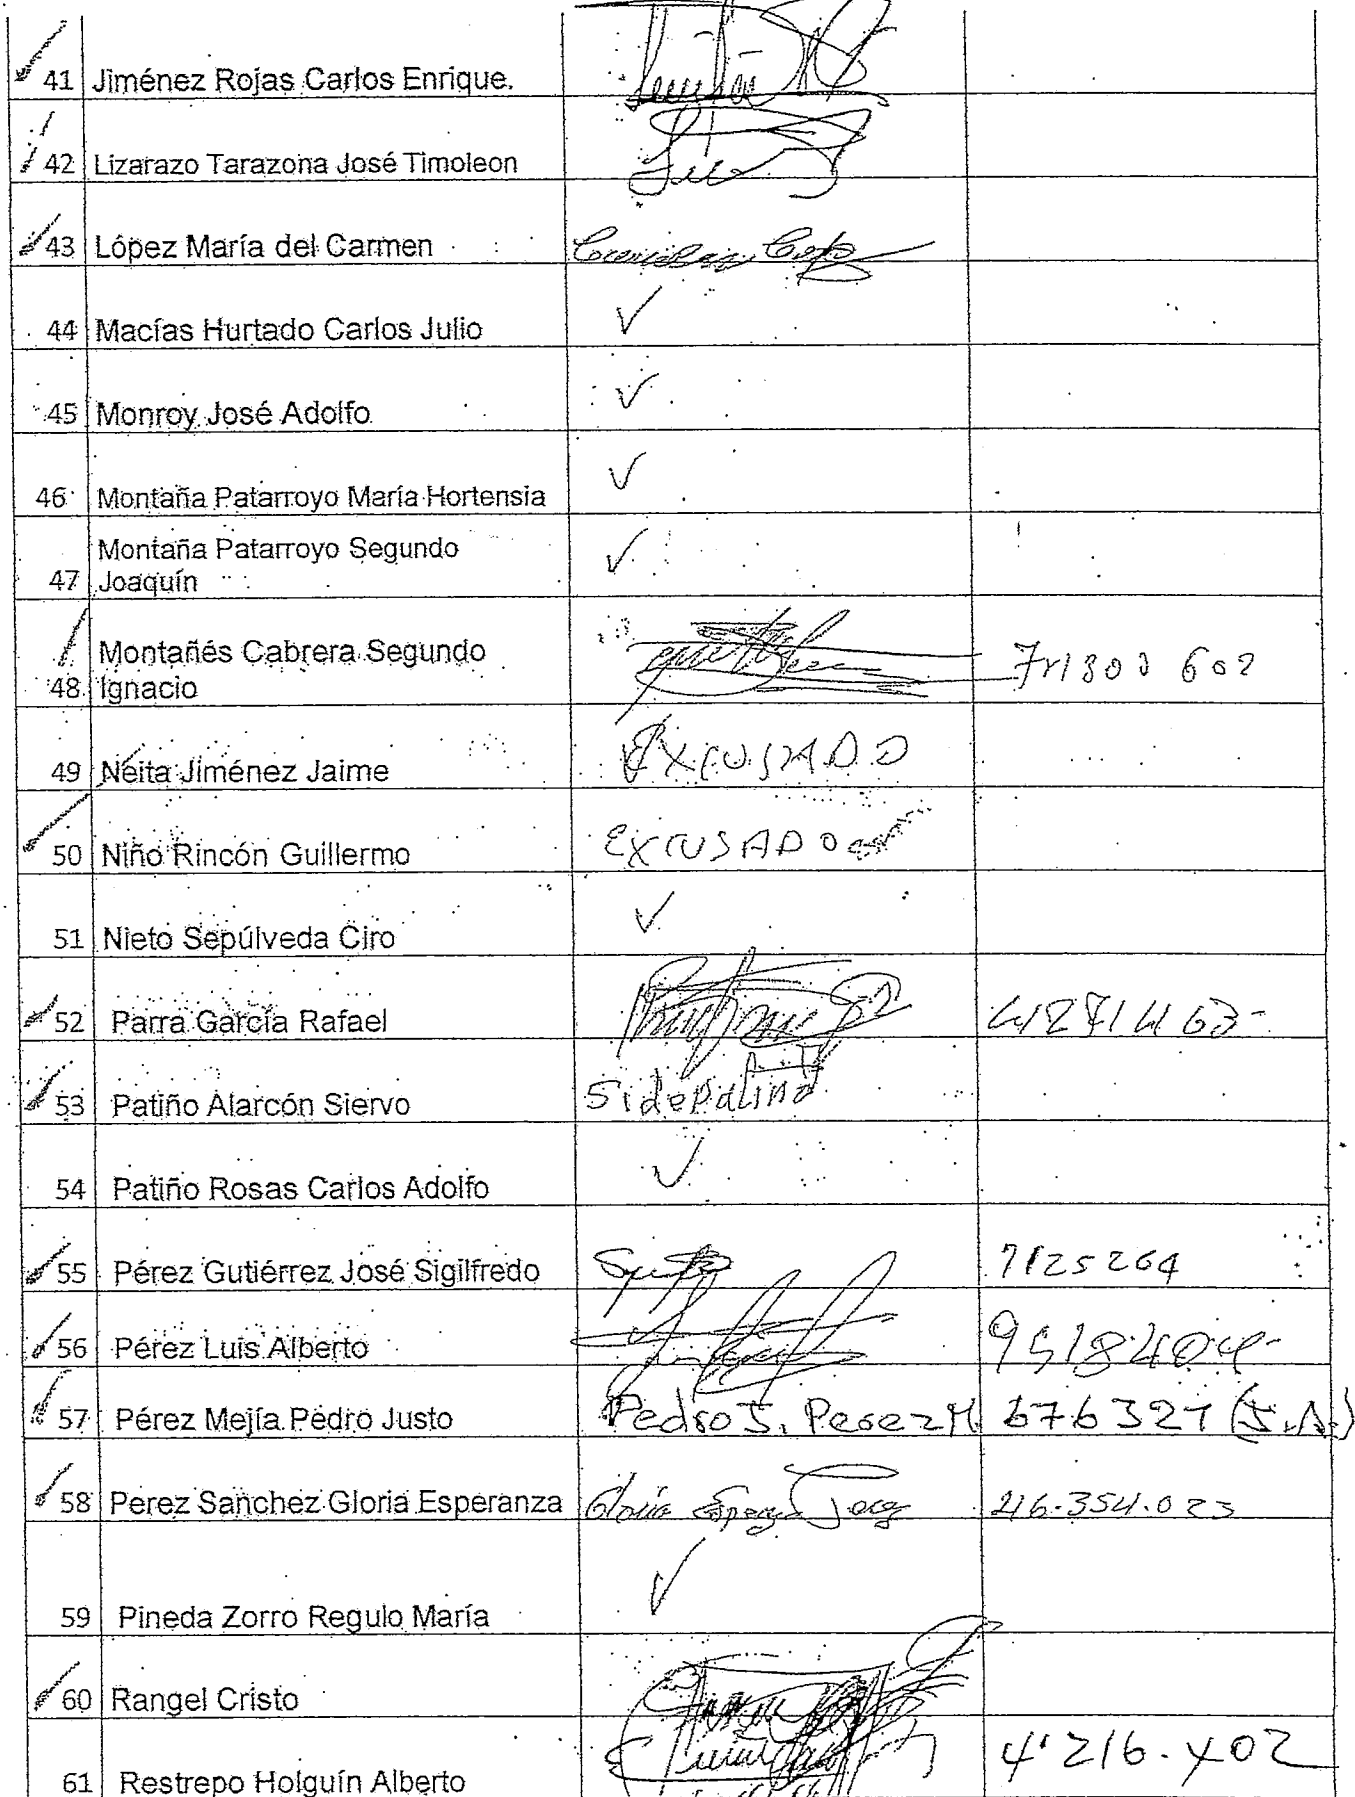 41 Jiménez Rojas Carlos Enrique.
42 Lizarazo Tarazona José Timoleon
43 López María del Carmen
44 Macías Hurtado Carlos Julio ✓
45 Monroy José Adolfo ✓
46 Montaña Patarroyo María Hortensia ✓
Montaña Patarroyo Segundo
47 Joaquín ✓
Montañés Cabrera Segundo
48 Ignacio
49 Neita Jiménez Jaime EXCUSADO
50 Niño Rincón Guillermo EXCUSADO
51 Nieto Sepúlveda Ciro ✓
52 Parra García Rafael
53 Patiño Alarcón Siervo
54 Patiño Rosas Carlos Adolfo ✓
55 Pérez Gutiérrez José Sigilfredo 7125264
56 Pérez Luis Alberto 9518404
57 Pérez Mejía Pedro Justo Pedro J. Perez M. 676321
58 Perez Sanchez Gloria Esperanza 46.354.023
59 Pineda Zorro Regulo María ✓
60 Rangel Cristo
61 Restrepo Holguín Alberto 4'216.402